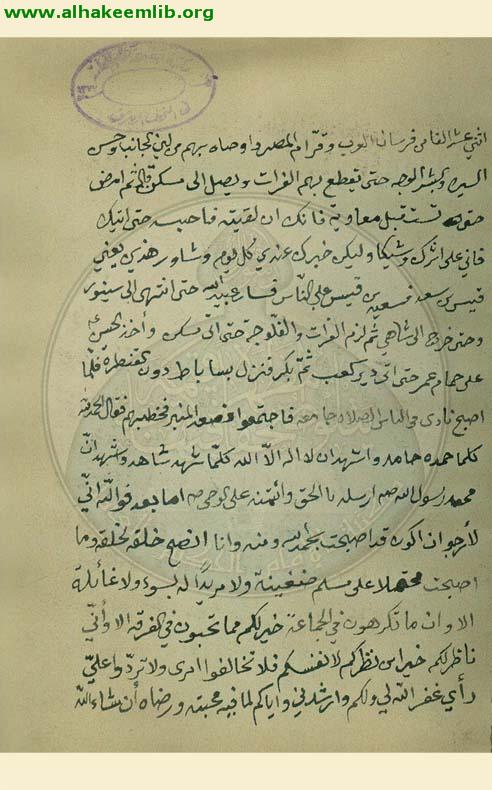 www.alhakeemlib.org
اثني عشر الفا من فرسان العرب وقرّاء المصر واوصاه بهم من لين الجانب وحسن
السيرة وبشر الوجه حتى تقطع بهم الفرات وتصل الى مسكن قال ثم امض
حتى تستقبل معاوية فانك ان لقيته فاحبسه حتى اتيك
فاني على اثرك وشيكا وليكن خبرك عندي كل يوم وشاور هذين يعني
قيس بن سعد وسعيد بن قيس على الناس فسار عبيد الله حتى انتهى الى سينور
وحتى خرج الى شاهي ثم لزم الفرات والفلوجة حتى اتى مسكن واخذ الحسن ع
على حمام عمر حتى اتى دير كعب ثمّ بكر فنزل بساباط دون القنطرة فلمّا
اصبح نادى في الناس الصلاة جامعة فاجتمعوا فصعد المنبر فخطبهم فقال الحمد لله
كلما حمده حامد واشهد ان لا اله الاّ الله كلّما شهد شاهد واشهد انّ
محمد رسول الله صه ارسله بالحق وائتمنه على الوحي صه اما بعد فوالله انّي
لأرجو ان اكون قد اصبحت بحمد الله ومنه وانا انصح خلقه لخلقه وما
اصبحت محتملا على مسلم ضغينة ولا مريداً له بسوء ولا غائلة
الا وان ما تكرهون في الجماعة خير لكم مما تحبون في الفرقة الا وأنّي
ناظر لكم خير امن نظركم لانفسكم فلا تخالفوا امرى ولا تردّوا عليّ
رأي غفر الله لي ولكم وارشدني واياكم لما فيه محبته ورضاه أن شاء الله